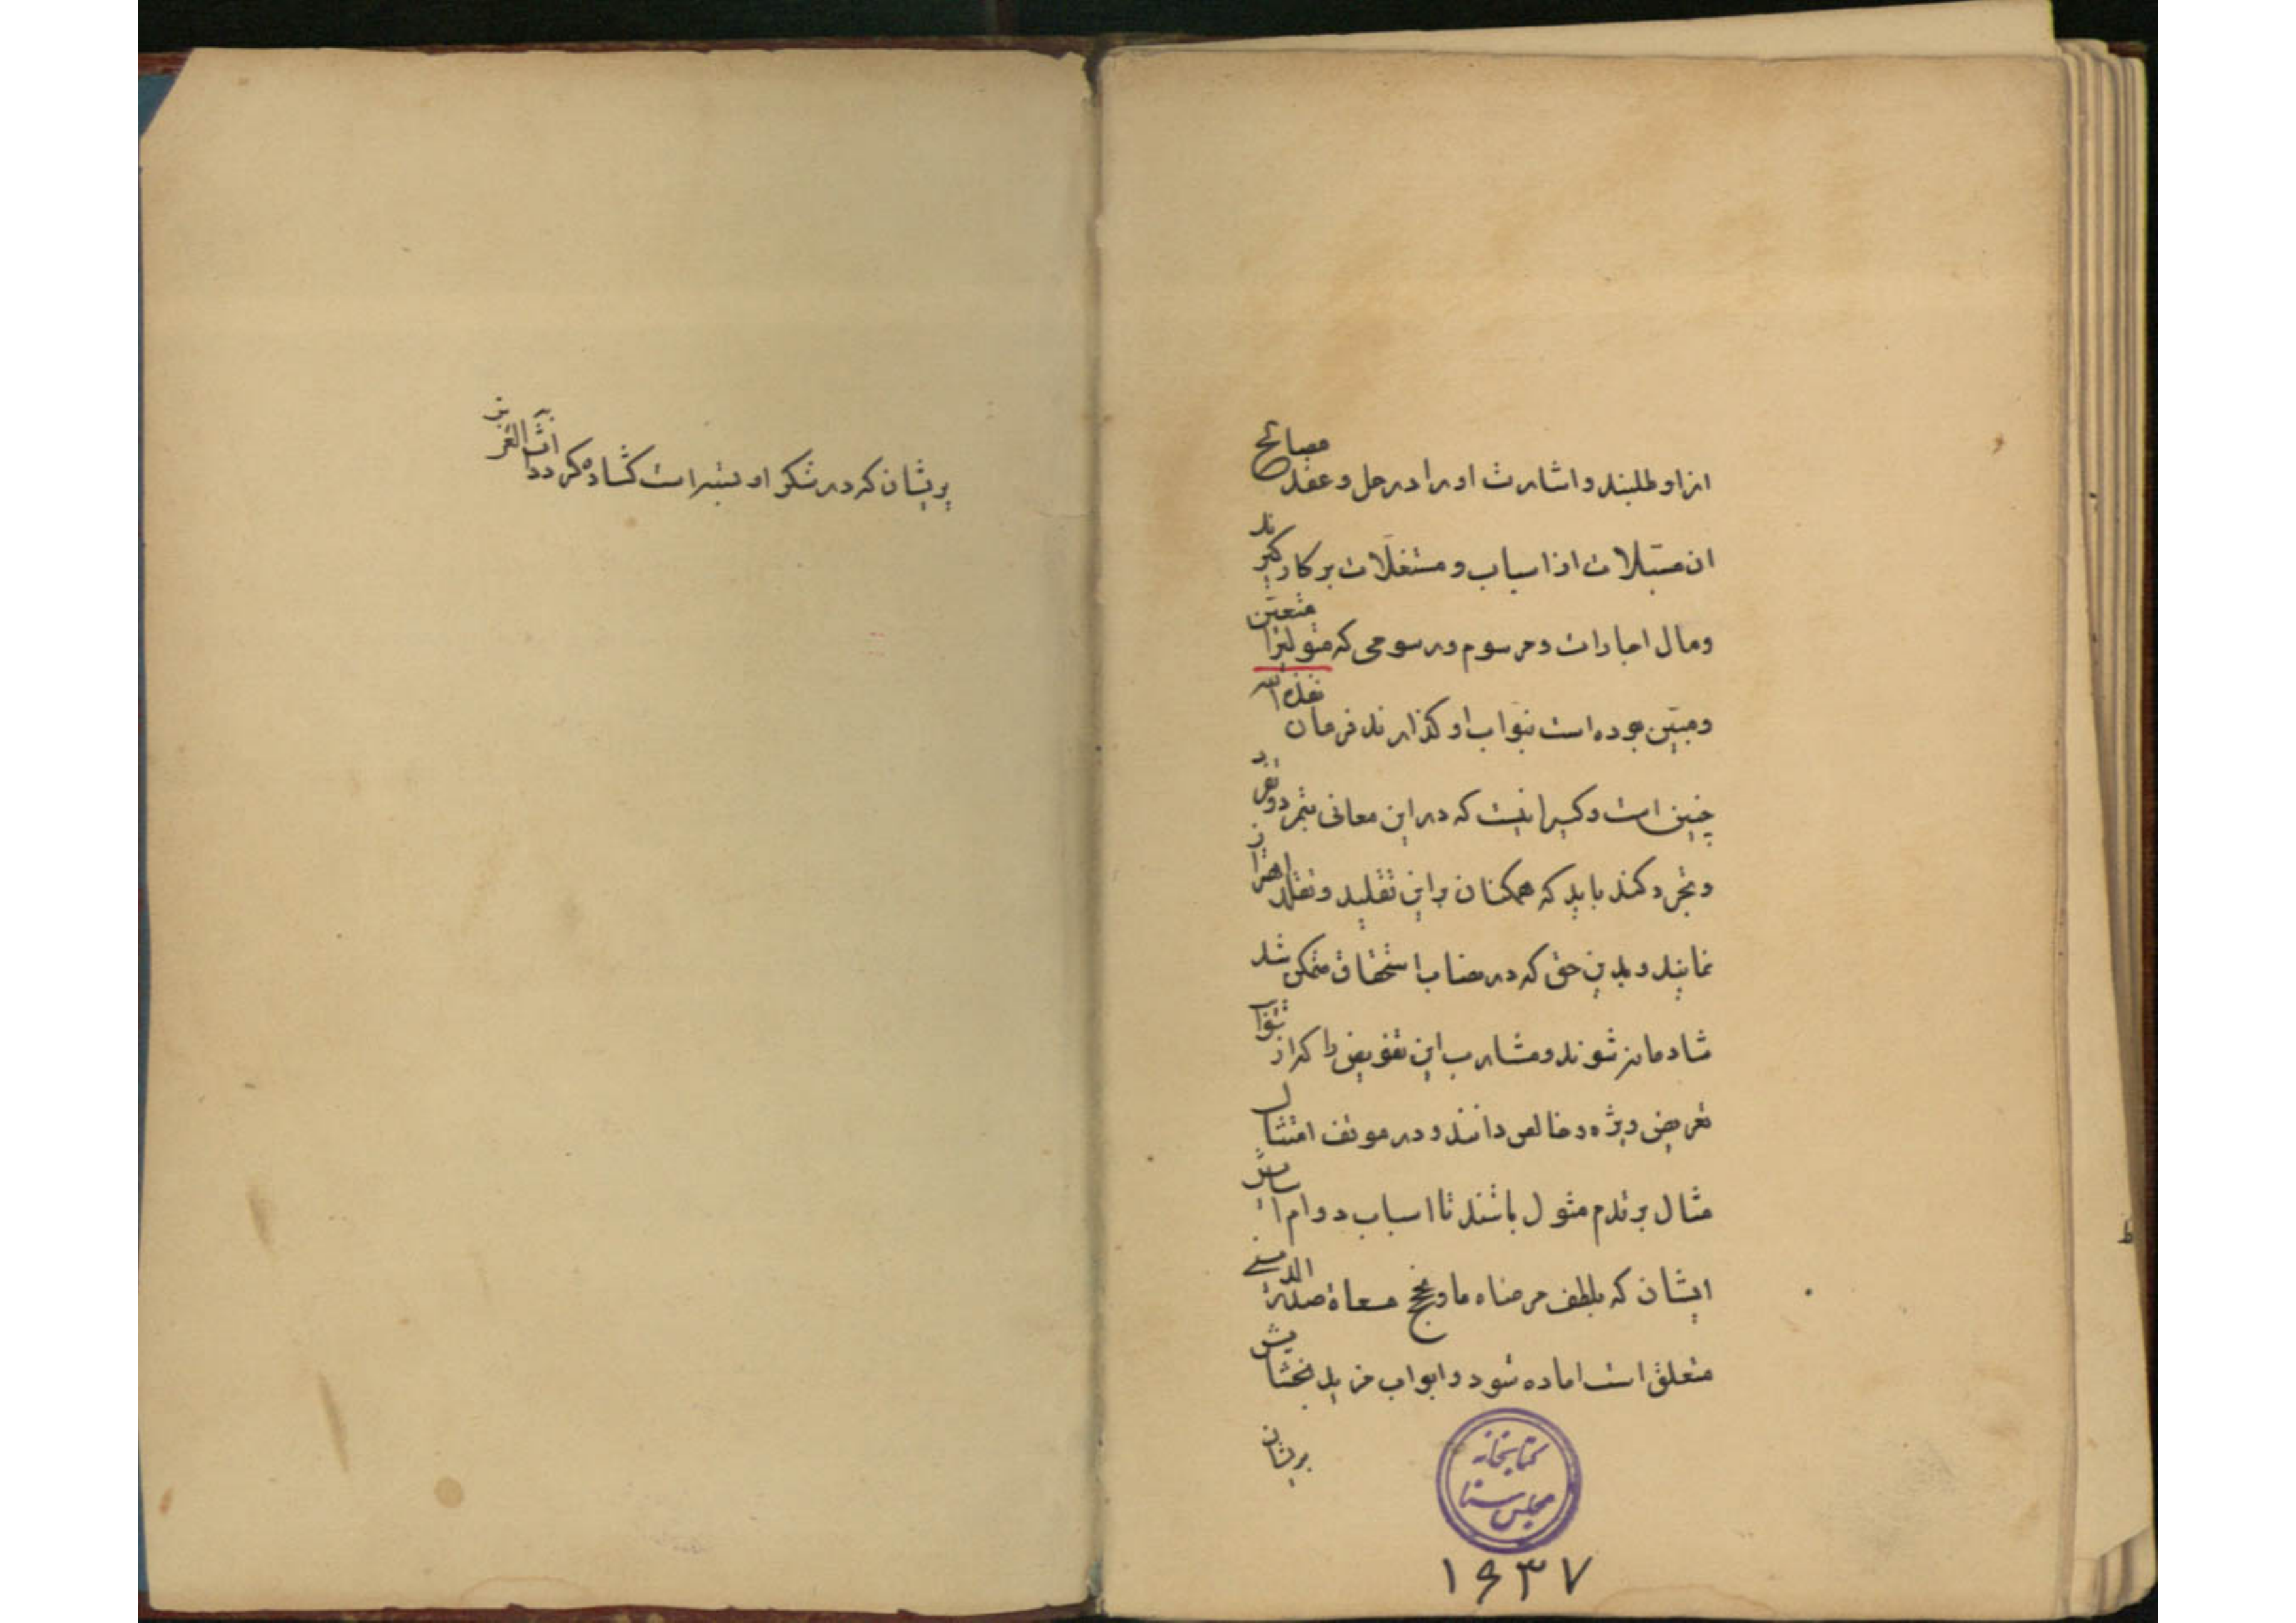 از او طلبند و اشارت او را در حل و عقد مصالح
ان مستبلات از اسیاب و مستغلات بر کار گیرند
و مال اجارات و مرسوم و رسومی که متولیرا متعین
و مبین بوده است بنواب او گذارند فرمان نفذه الله
چنین است و کسیرا نیست که در این معانی تمرد و تفرد
و تجرد کند باید که همکنان بر این تقلید و تقلد اهتزاز
نمایند و بدین حق که در نصاب استحقاق متمکن شد
شادمانه شوند و مشارب این تفویض را که از نوایب
تعریض ویژه و خالص دانند و در موقف امتثال
مثال بر قدم مثول باشند تا اسباب دوام اسایش
ایشان که بلطف مرضاه ما و نجح مسعاة صدر الدینی
متعلق است اماده شود و ابواب مزید بخشایش
بریشان
کتابخانه
مجلس سنا
۱۶۳۷
بریشان که در شکر او بسته است کشاده گردد انشاء العزیز